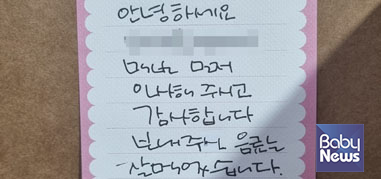 안녕하세요
매번 먼저
인사해 주시고
감사합니다
보내주신 음료는
잘 먹겠습니다.
Baby
News